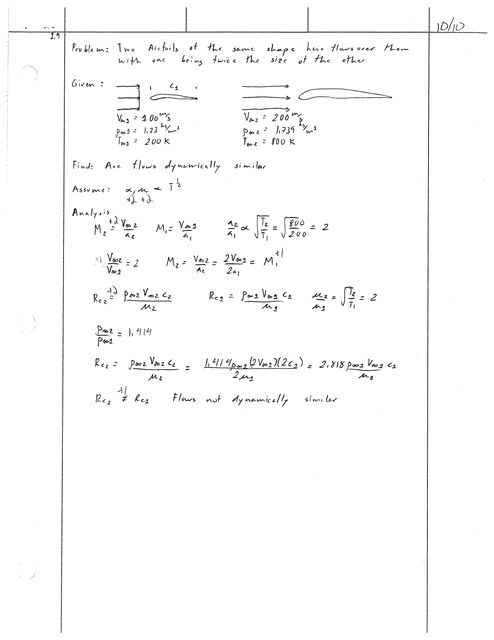 10/10
1.9
Problem: Two Airfoils of the same shape have flows over them
with one being twice the size of the other
Given: C₁
V∞1 = 100 m/s V∞2 = 200 m/s
ρ∞1 = 1.23 kg/m³ ρ∞2 = 1.739 kg/m³
T∞1 = 200 K T∞2 = 800 K
Find: Are flows dynamically similar
Assume: α, μ ∝ T^½
+2 +2
Analysis
+2
M₂ = V∞2/a₂ M₁ = V∞1/a₁ a₂/a₁ ∝ √(T₂/T₁) = √(800/200) = 2
V∞2/V∞1 = 2 M₂ = V∞2/a₂ = 2V∞1/2a₁ = M₁ +1
Re₂ = ρ∞2 V∞2 c₂/μ₂ Re₁ = ρ∞1 V∞1 c₁/μ₁ μ₂/μ₁ = √(T₂/T₁) = 2
+2
ρ∞2/ρ∞1 = 1.414
Re₂ = ρ∞2 V∞2 c₂/μ₂ = 1.414ρ∞1(2V∞1)(2c₁)/2μ₁ = 2.818 ρ∞1 V∞1 c₁/μ₁
+1
Re₂ ≠ Re₁ Flows not dynamically similar